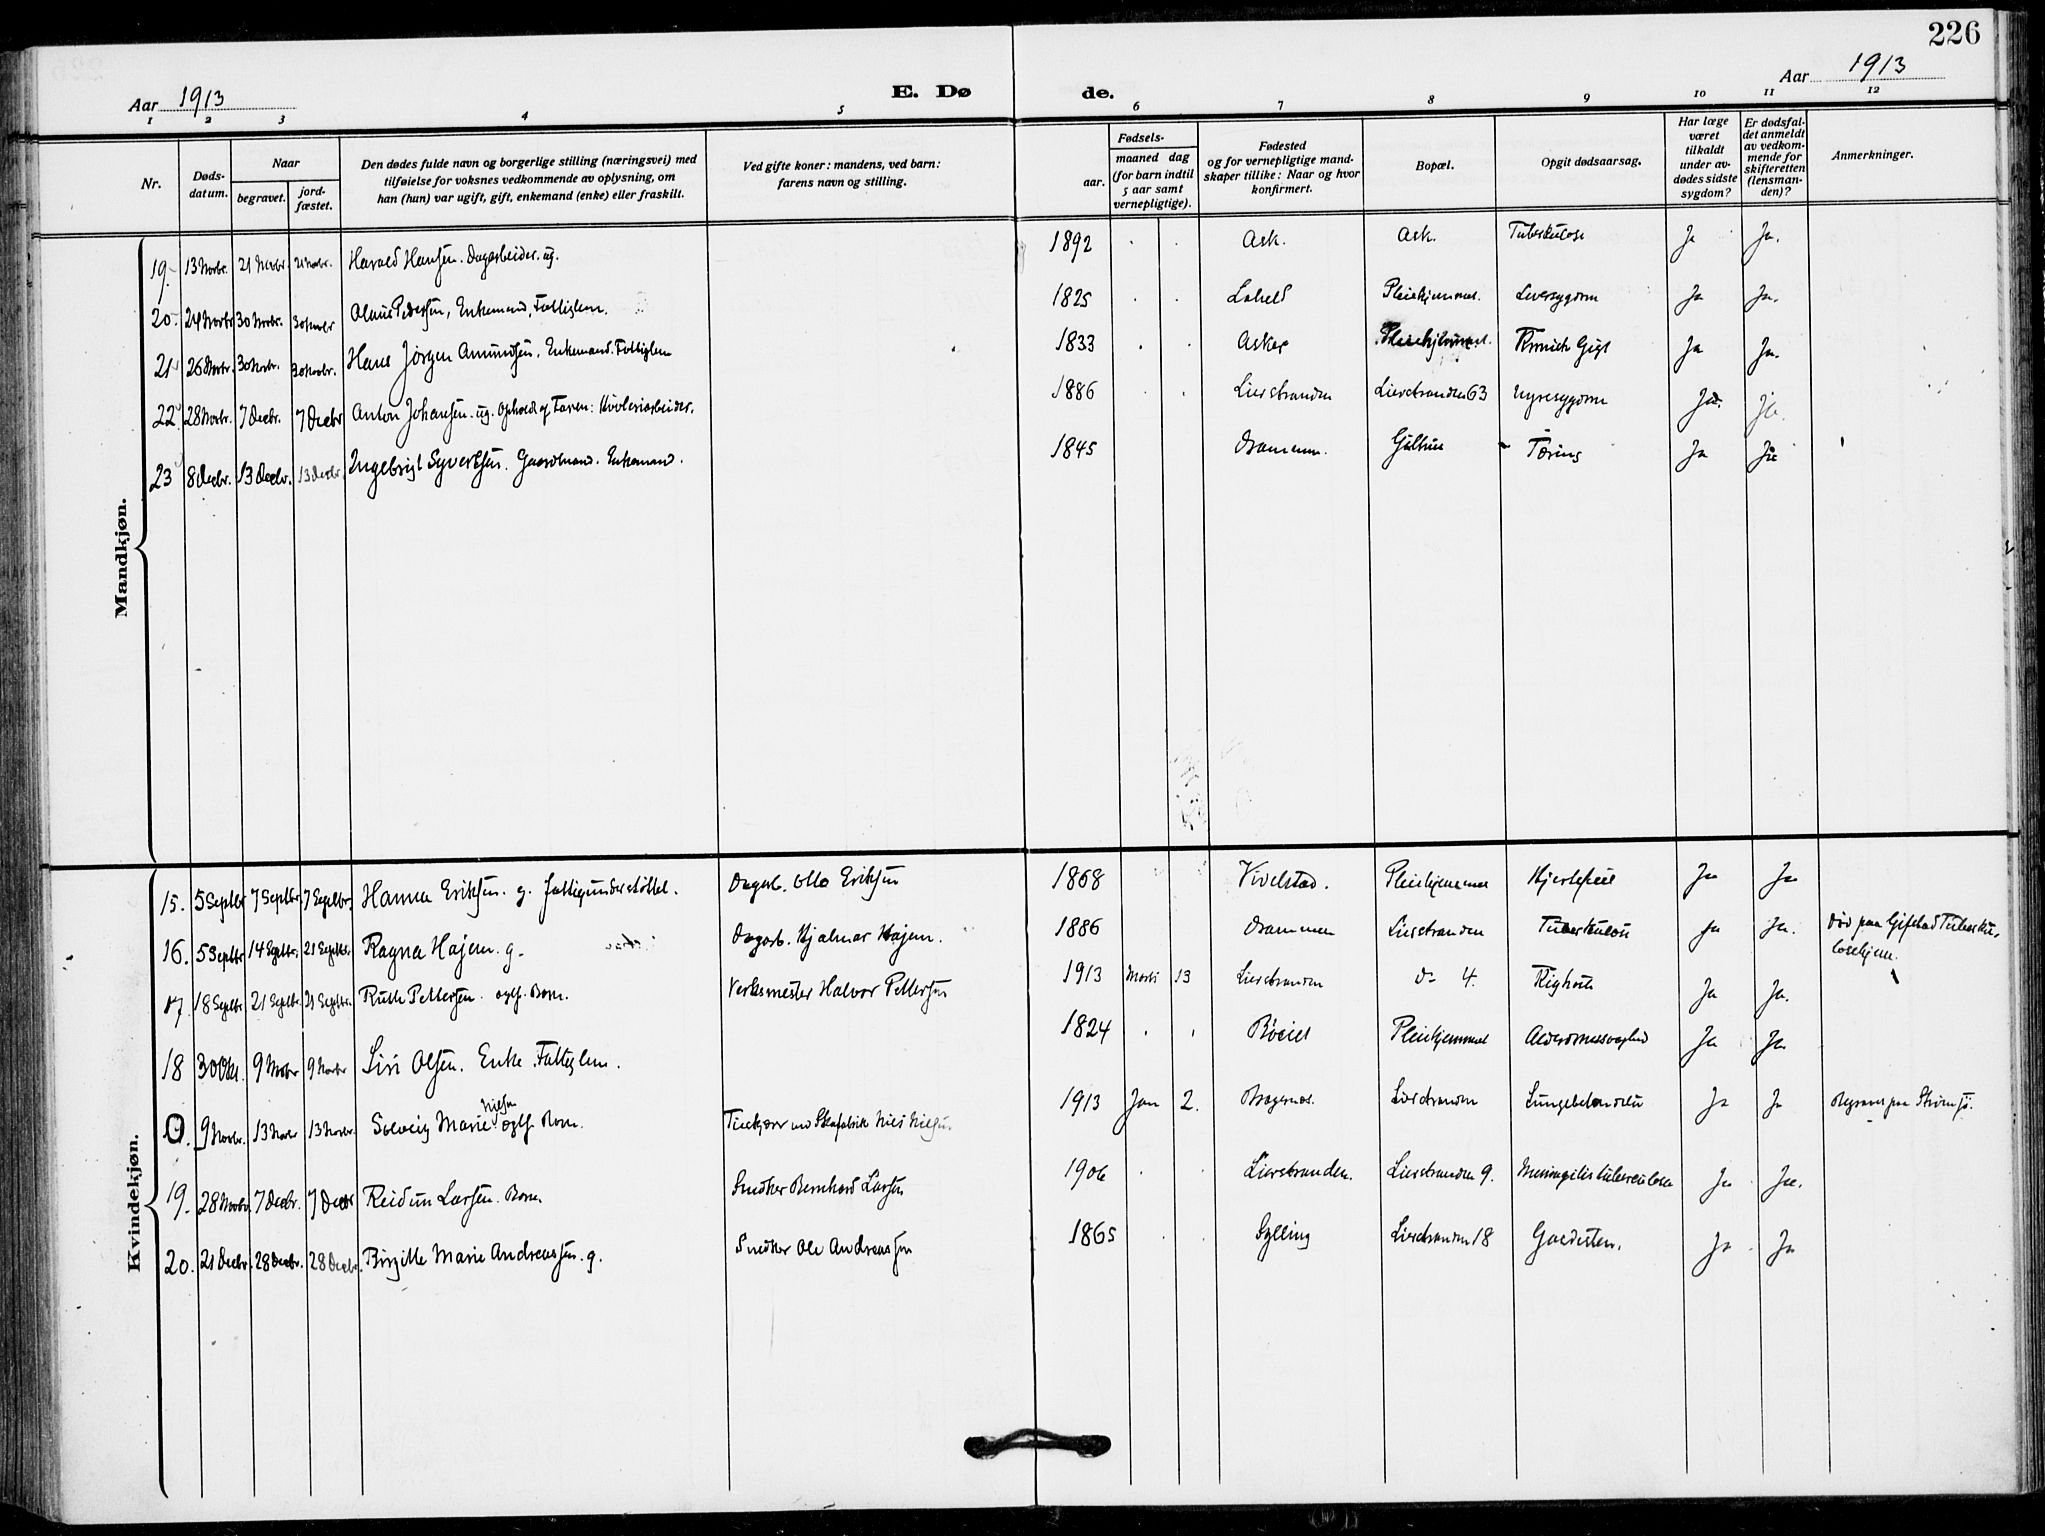 226
Aar 1913
E. Dø de.
Aar 1913
1 2 3 4 5 6 7 8 9 10 11 12
Nr.
Døds-
datum.
Naar
begravet.
jord-
fæstet.
Den dødes fulde navn og borgerlige stilling (næringsvei) med
tilføielse for voksnes vedkommende av oplysning, om
han (hun) var ugift, gift, enkemand (enke) eller fraskilt.
Ved gifte koner: mandens, ved barn:
farens navn og stilling.
Fødsels-
aar.
maaned dag
(for barn indtil
5 aar samt
vernepligtige).
Fødested
og for vernepligtige mand-
skaper tillike: Naar og hvor
konfirmert.
Bopæl.
Opgit dødsaarsag.
Har læge
været
tilkaldt
under av-
dødes sidste
sygdom?
Er dødsfal-
det anmeldt
av vedkom-
mende for
skifteretten
(lensman-
den)?
Anmerkninger.
Mandkjøn.
19. 13 Novbr. 21 Novbr. 21 Novbr. Harald Hansen. Dagarbeider. ug. 1892 Ask. Ask. Tuberkulose Ja Ja.
20. 24 Novbr 30 Novbr. 30 Novbr Olaus Pedersen, Enkemand, Fattiglem. 1825 Pleiehjemmet. Leversygdom Ja Ja.
21 26 Novbr. 30 Novbr. 30 Novbr. Hans Jørgen Amundsen. Enkemand. Fattiglem 1833 Asker Pleiehjemmet. Kronisk Gigt Ja Ja.
22 28 Novbr. 7 Decbr. 7 Decbr Anton Johansen. ug. Ophold af Faren: 1886 Lierstranden Lierstranden 63 Nyresygdom Ja. Ja.
23 8 Decbr. 13 Decbr. 13 Decbr. Ingebrigt Syvertsen. Gaardmand. Enkemand. 1845 Drammen. Gilhus Tæring Ja Ja
Kvindekjøn.
15. 5 Septbr 7 Septbr. 7 Septbr. Hanna Eriksen. g. fattigunderstøttet. Dagarb. Otto Eriksen 1868 Vivelstad. Pleiehjemmet Hjertefeil Ja Ja
16. 5 Septbr 14 Septbr. 21 Septbr. Ragna Hajem. g. Dagarb. Hjalmar Hajem. 1886 Drammen Lierstranden Tuberkulose Ja Ja. Død paa Gifstad Tuberku-
losehjem.
17 18 Septbr. 21 Septbr. 21 Septbr. Ruth Pettersen. ægtf. Barn. Verksmester Halvor Pettersen 1913 Marts 13 Lierstranden do 4. Kighoste Ja Ja.
18 30 Okt. 9 Novbr 9 Novbr Siri Olsen. Enke. Fattiglem. 1824 Pleiehjemmet Alderdomssvaghed Ja Ja.
0. 9 Novbr. 13 Novbr 13 Novbr. Solveig Marie Nilsen ægtf. Barn. Nils Nilsen. 1913 Jan 2. Bragernes. Lierstranden Lungebetændelse Ja Ja Begravet paa Strømsø.
19. 28 Novbr. 7 Decbr. 7 Decbr Reidun Larsen. Barn. Snedker Bernhard Larsen 1906 Lierstranden. Lierstranden 9. Meningitis tuberculosa Ja Ja.
20. 21 Decbr. 28 Decbr. 28 Decbr. Birgitte Marie Andreassen. g. Snedker Ole Andreassen 1865 Sylling Lierstranden 18 Galdesten. Ja Ja